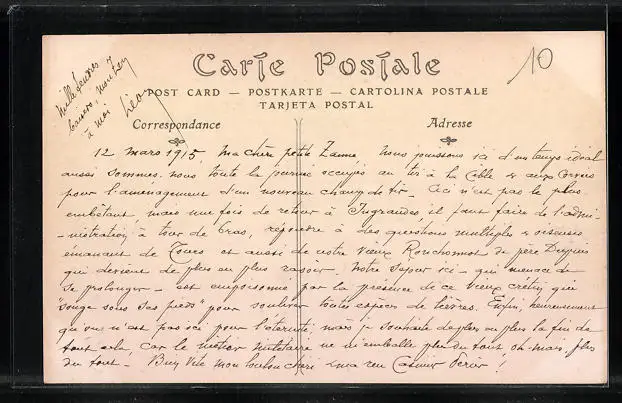 Carte Postale
10
POST CARD — POSTKARTE — CARTOLINA POSTALE
TARJETA POSTAL
Correspondance
Adresse
mille tendres
baisers, mon
à moi
Léon
12 mars 1915, Ma chère petite Zaume, Nous jouissons ici d'un temps idéal
aussi sommes-nous toute la journée occupés au tir à la cible & aux corvées
pour l'aménagement d'un nouveau champ de tir. Ceci n'est pas le plus
embêtant, mais une fois de retour à Ingrandes, il faut faire de l'admi-
-nistration à tour de bras, répondre à des questions multiples & oiseuses
émanant de Tours et aussi de notre vieux de père Dupuis
qui devient de plus en plus rasoir. Notre séjour ici - qui menace de
se prolonger - est empoisonné par la présence de ce vieux crétin qui
"songe sous ses pieds" pour soulever toutes espèces de lièvres. Enfin, heureusement
qu'on n'est pas ici pour l'éternité, mais je souhaite de plus en plus la fin de
tout cela, car le métier militaire ne m'emballe plus du tout, oh mais, plus
du tout - Bien vite mon loulou chéri